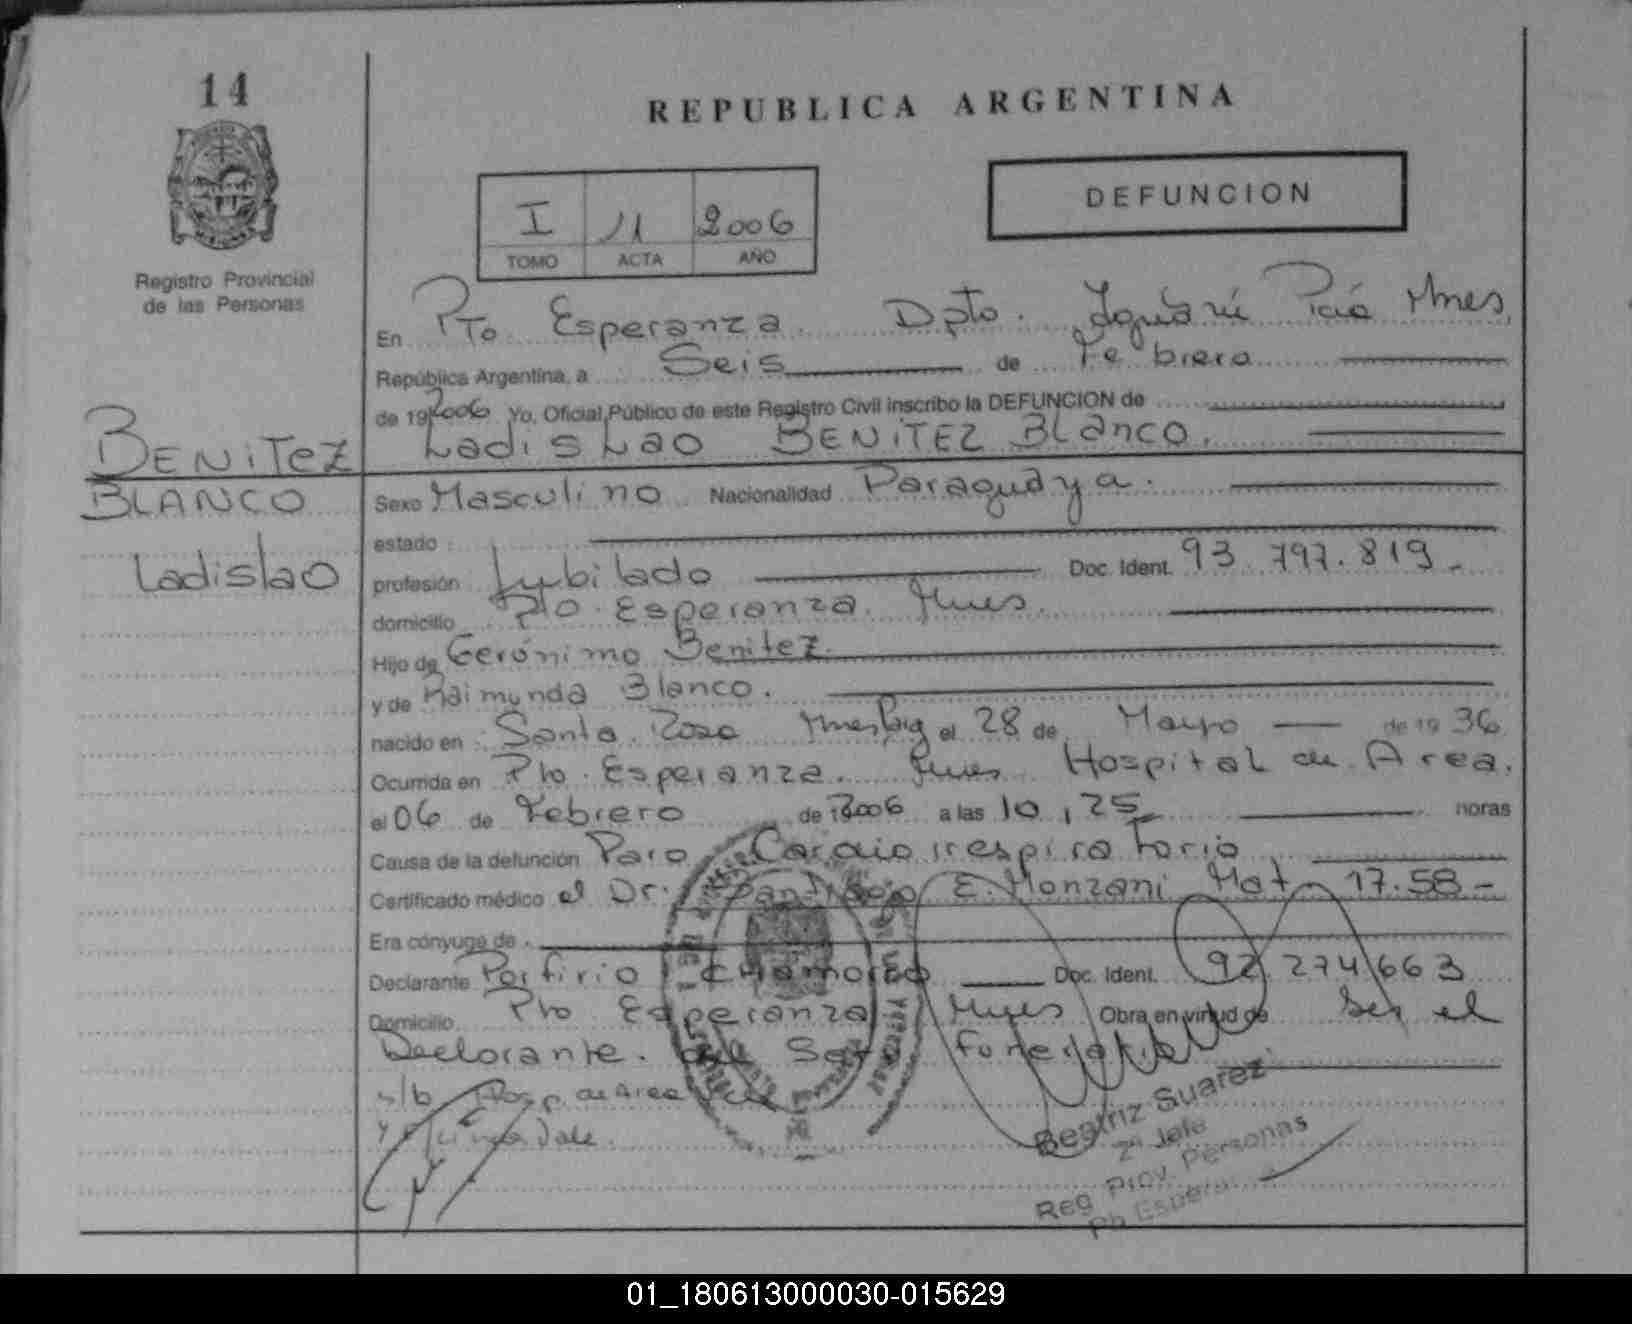 14
REPUBLICA ARGENTINA
I 11 2006
TOMO ACTA AÑO
DEFUNCION
Registro Provincial
de las Personas
En Pto Esperanza Dpto. Iguazú Mnes,
República Argentina, a Seis de Febrero
de 19 2006 Yo, Oficial Público de este Registro Civil inscribo la DEFUNCION de
Ladislao BENITEZ BLanco.
BENITEZ
BLANCO
Ladislao
Sexo Masculino Nacionalidad Paraguaya.
estado
profesión Jubilado Doc. Ident. 93.797.819-
domicilio Pto. Esperanza. Mnes.
Hijo de Gerónimo Benitez.
y de Raimunda Blanco.
nacido en Santa Rosa el 28 de Mayo de 19 36
Ocurrida en Pto. Esperanza. Mnes Hospital de Area.
el 06 de Febrero de 2006 a las 10,25 horas
Causa de la defunción Paro Cardiorrespiratorio
Certificado médico el Dr. E. Monzani Mat. 17.58-
Era cónyuge de
Declarante Porfirio Doc. Ident. 92.274.663
Domicilio Pto Esperanza Mnes Obra en virtud de Ser el
Declarante.
Beatriz Suarez
2º Jefe
Reg Prov. Personas
01_180613000030-015629